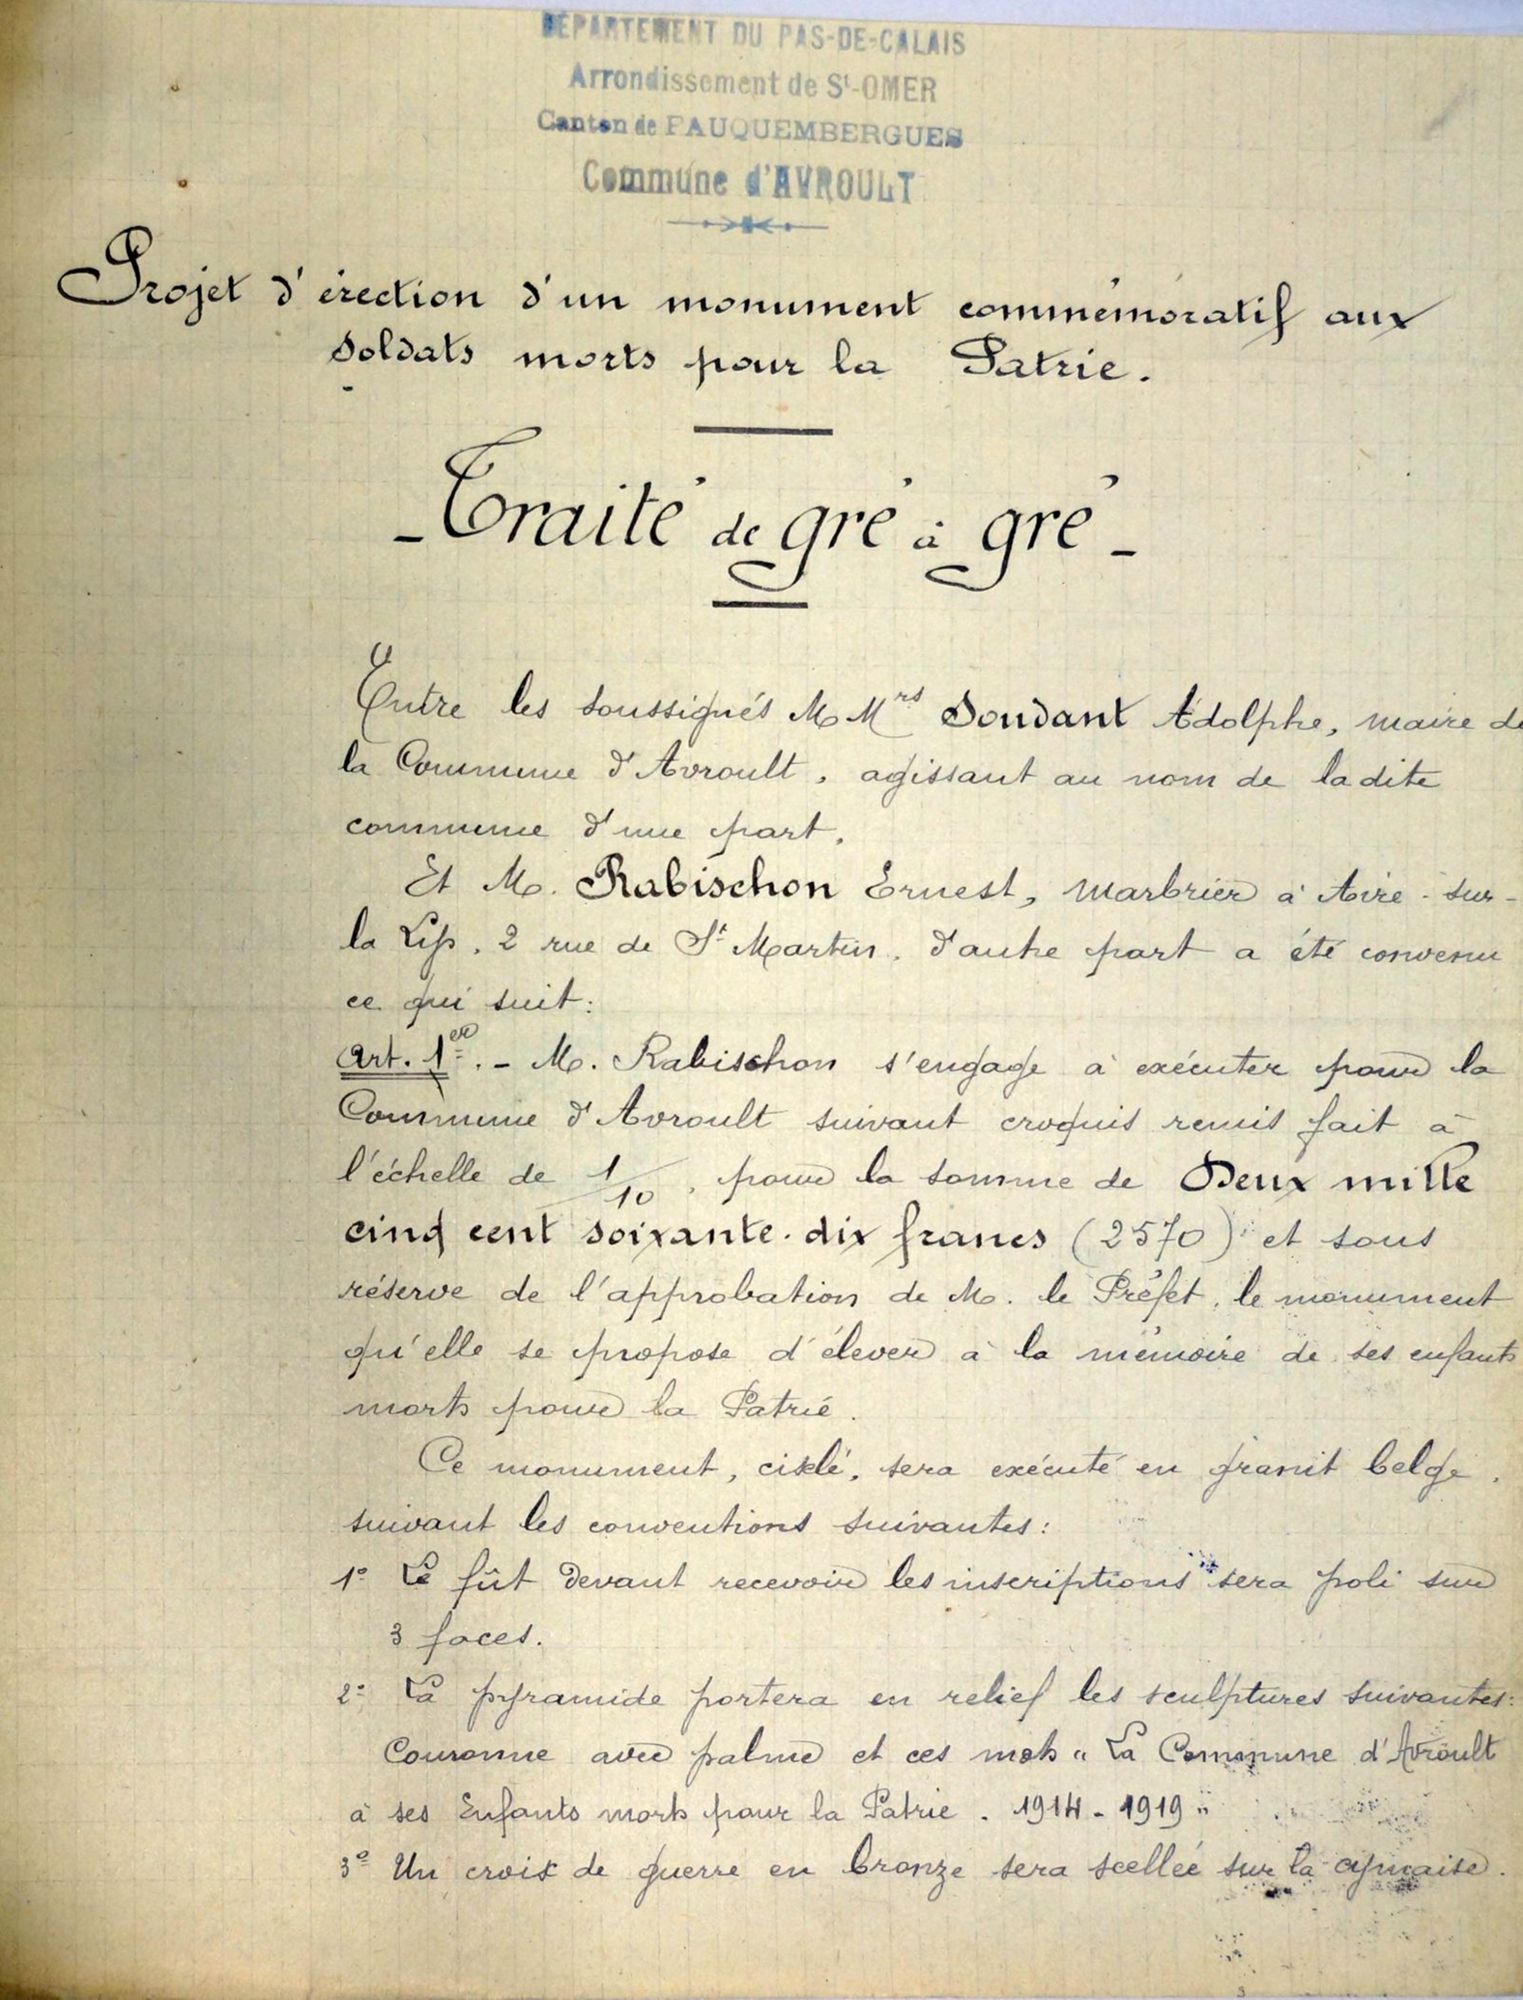 DÉPARTEMENT DU PAS-DE-CALAIS
Arrondissement de St-OMER
Canton de FAUQUEMBERGUES
Commune d'AVROULT
Projet d'érection d'un monument commémoratif aux
soldats morts pour la Patrie.
- Traité de gré à gré -
Entre les soussignés M Mrs Soudant Adolphe, maire de
la Commune d'Avroult, agissant au nom de la dite
commune d'une part,
Et M. Rabischon Ernest, marbrier à Aire-sur-
la Lys, 2 rue de St Martin, d'autre part a été convenu
ce qui suit:
Art. 1er. - M. Rabischon s'engage à exécuter pour la
Commune d'Avroult suivant croquis remis fait à
l'échelle de 1/10, pour la somme de Deux mille
cinq cent soixante-dix francs (2570) et sous
réserve de l'approbation de M. le Préfet, le monument
qu'elle se propose d'élever à la mémoire de ses enfants
morts pour la Patrie.
Ce monument, ciselé, sera exécuté en granit belge,
suivant les conventions suivantes:
1° Le fût devant recevoir les inscriptions sera poli sur
3 faces.
2° La pyramide portera en relief les sculptures suivantes:
Couronne avec palme et ces mots "La Commune d'Avroult
à ses Enfants morts pour la Patrie. 1914-1919"
3° Un croix de guerre en bronze sera scellée sur la cymaise.